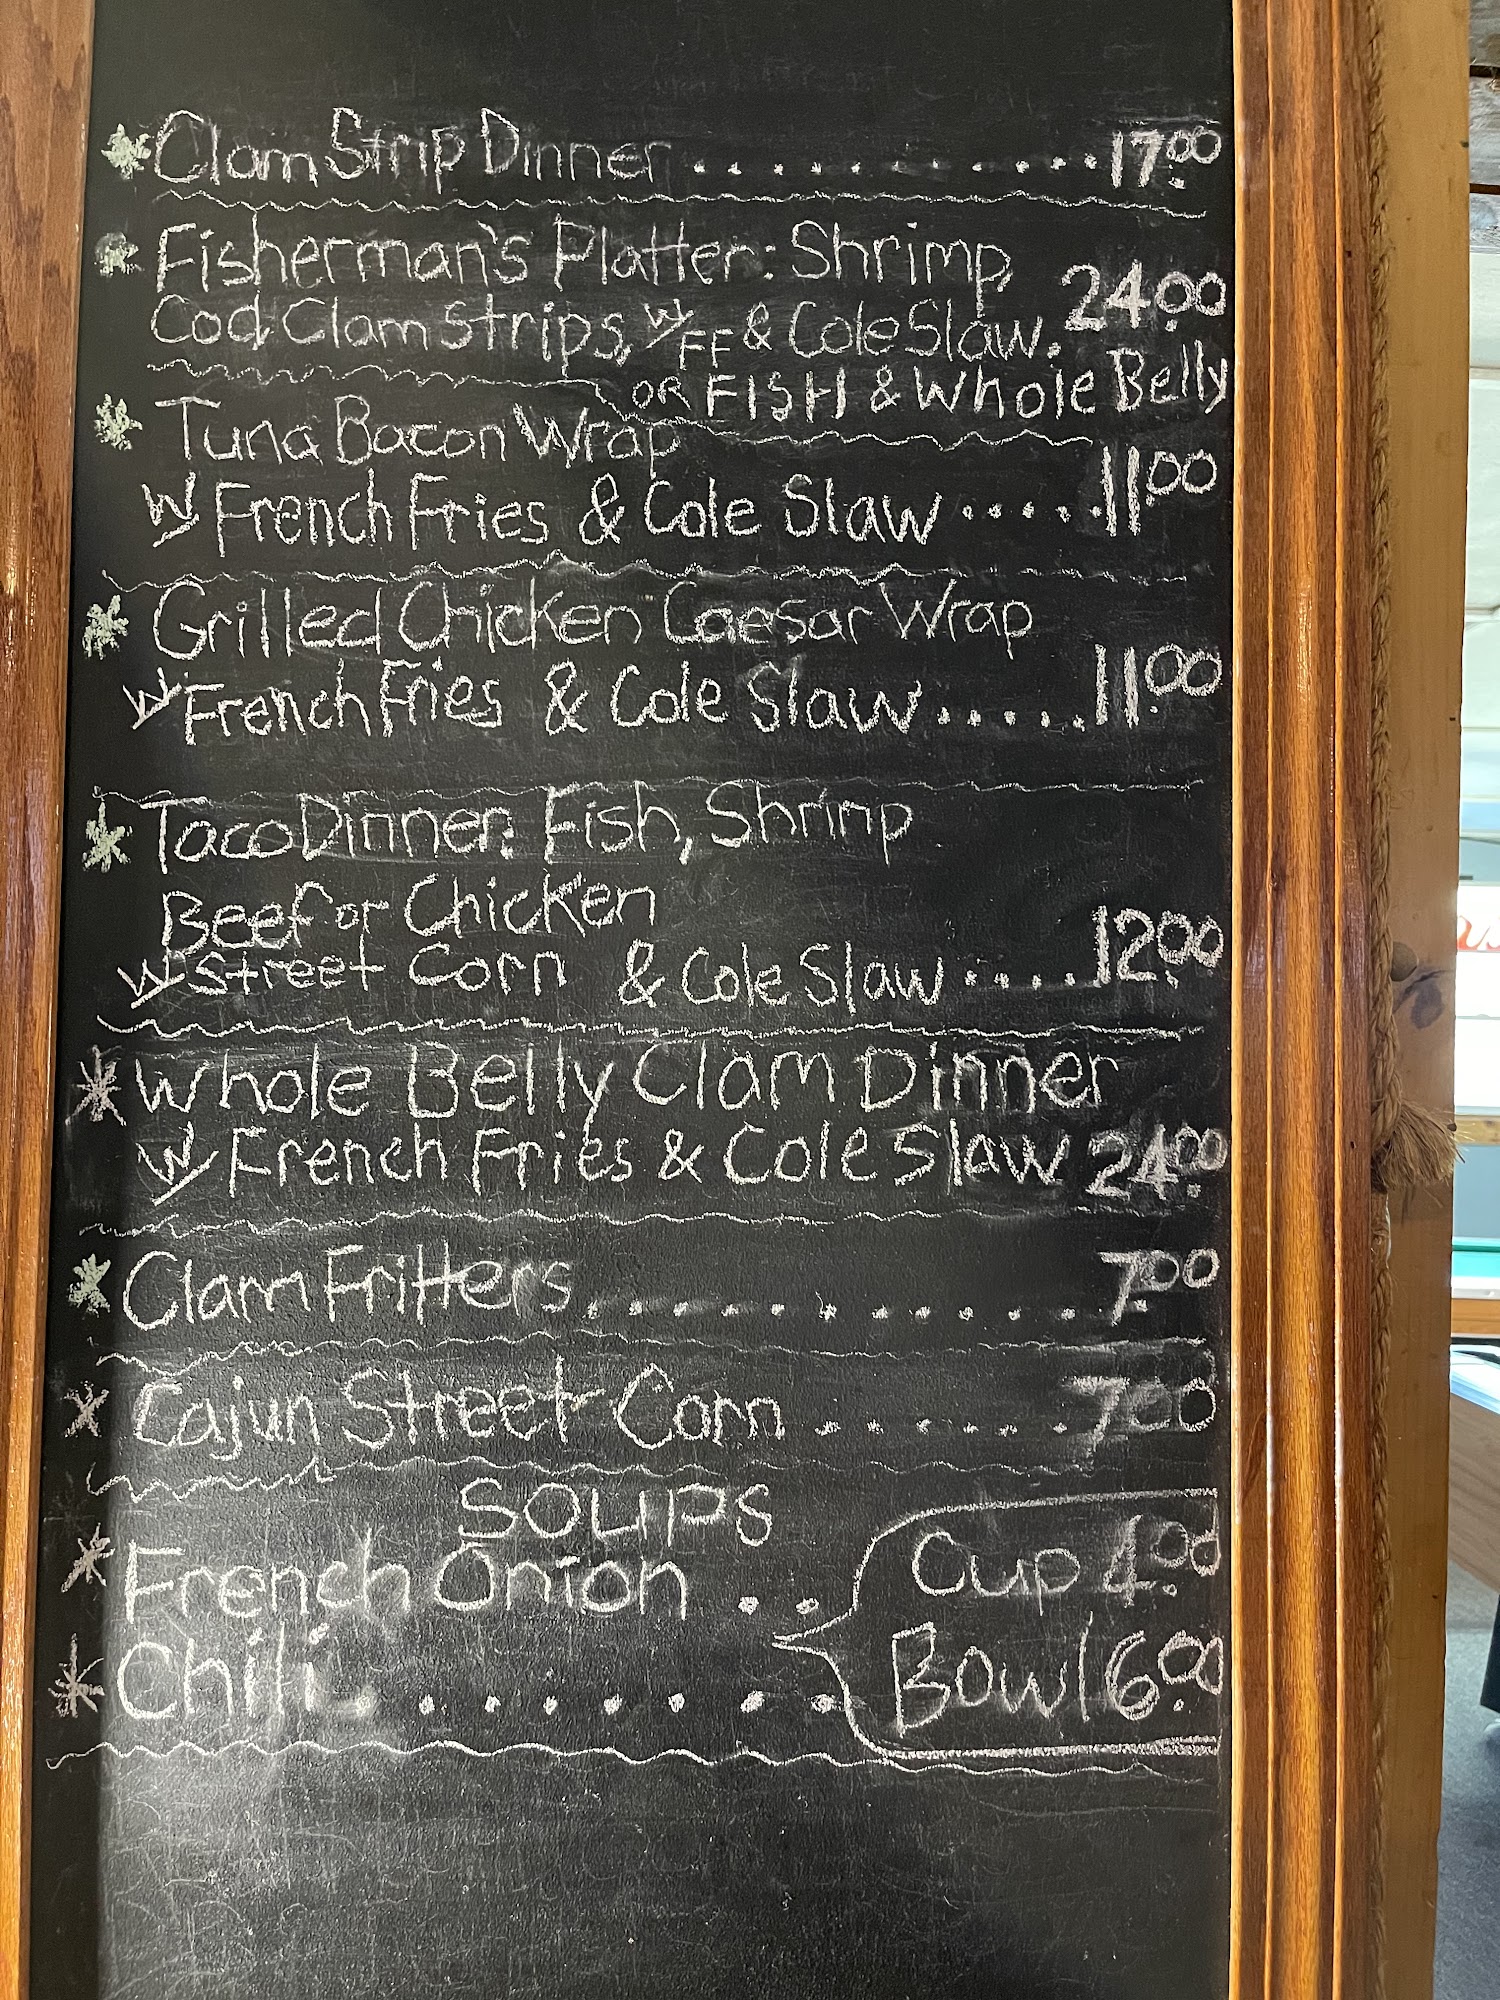 * Clam Strip Dinner ............ 17.00
* Fisherman's Platter: Shrimp
Cod Clam Strips, w/ FF & Cole Slaw. 24.00
OR FISH & Whole Belly
* Tuna Bacon Wrap
w/ French Fries & Cole Slaw ..... 11.00
* Grilled Chicken Caesar Wrap
w/ French Fries & Cole Slaw ..... 11.00
* Taco Dinner: Fish, Shrimp
Beef or Chicken
w/ Street Corn & Cole Slaw .... 12.00
* Whole Belly Clam Dinner
w/ French Fries & Cole Slaw 24.00
* Clam Fritters ............ 7.00
* Cajun Street Corn ...... 7.00
SOUPS
* French Onion .. Cup 4.00
* Chili ........ Bowl 6.00